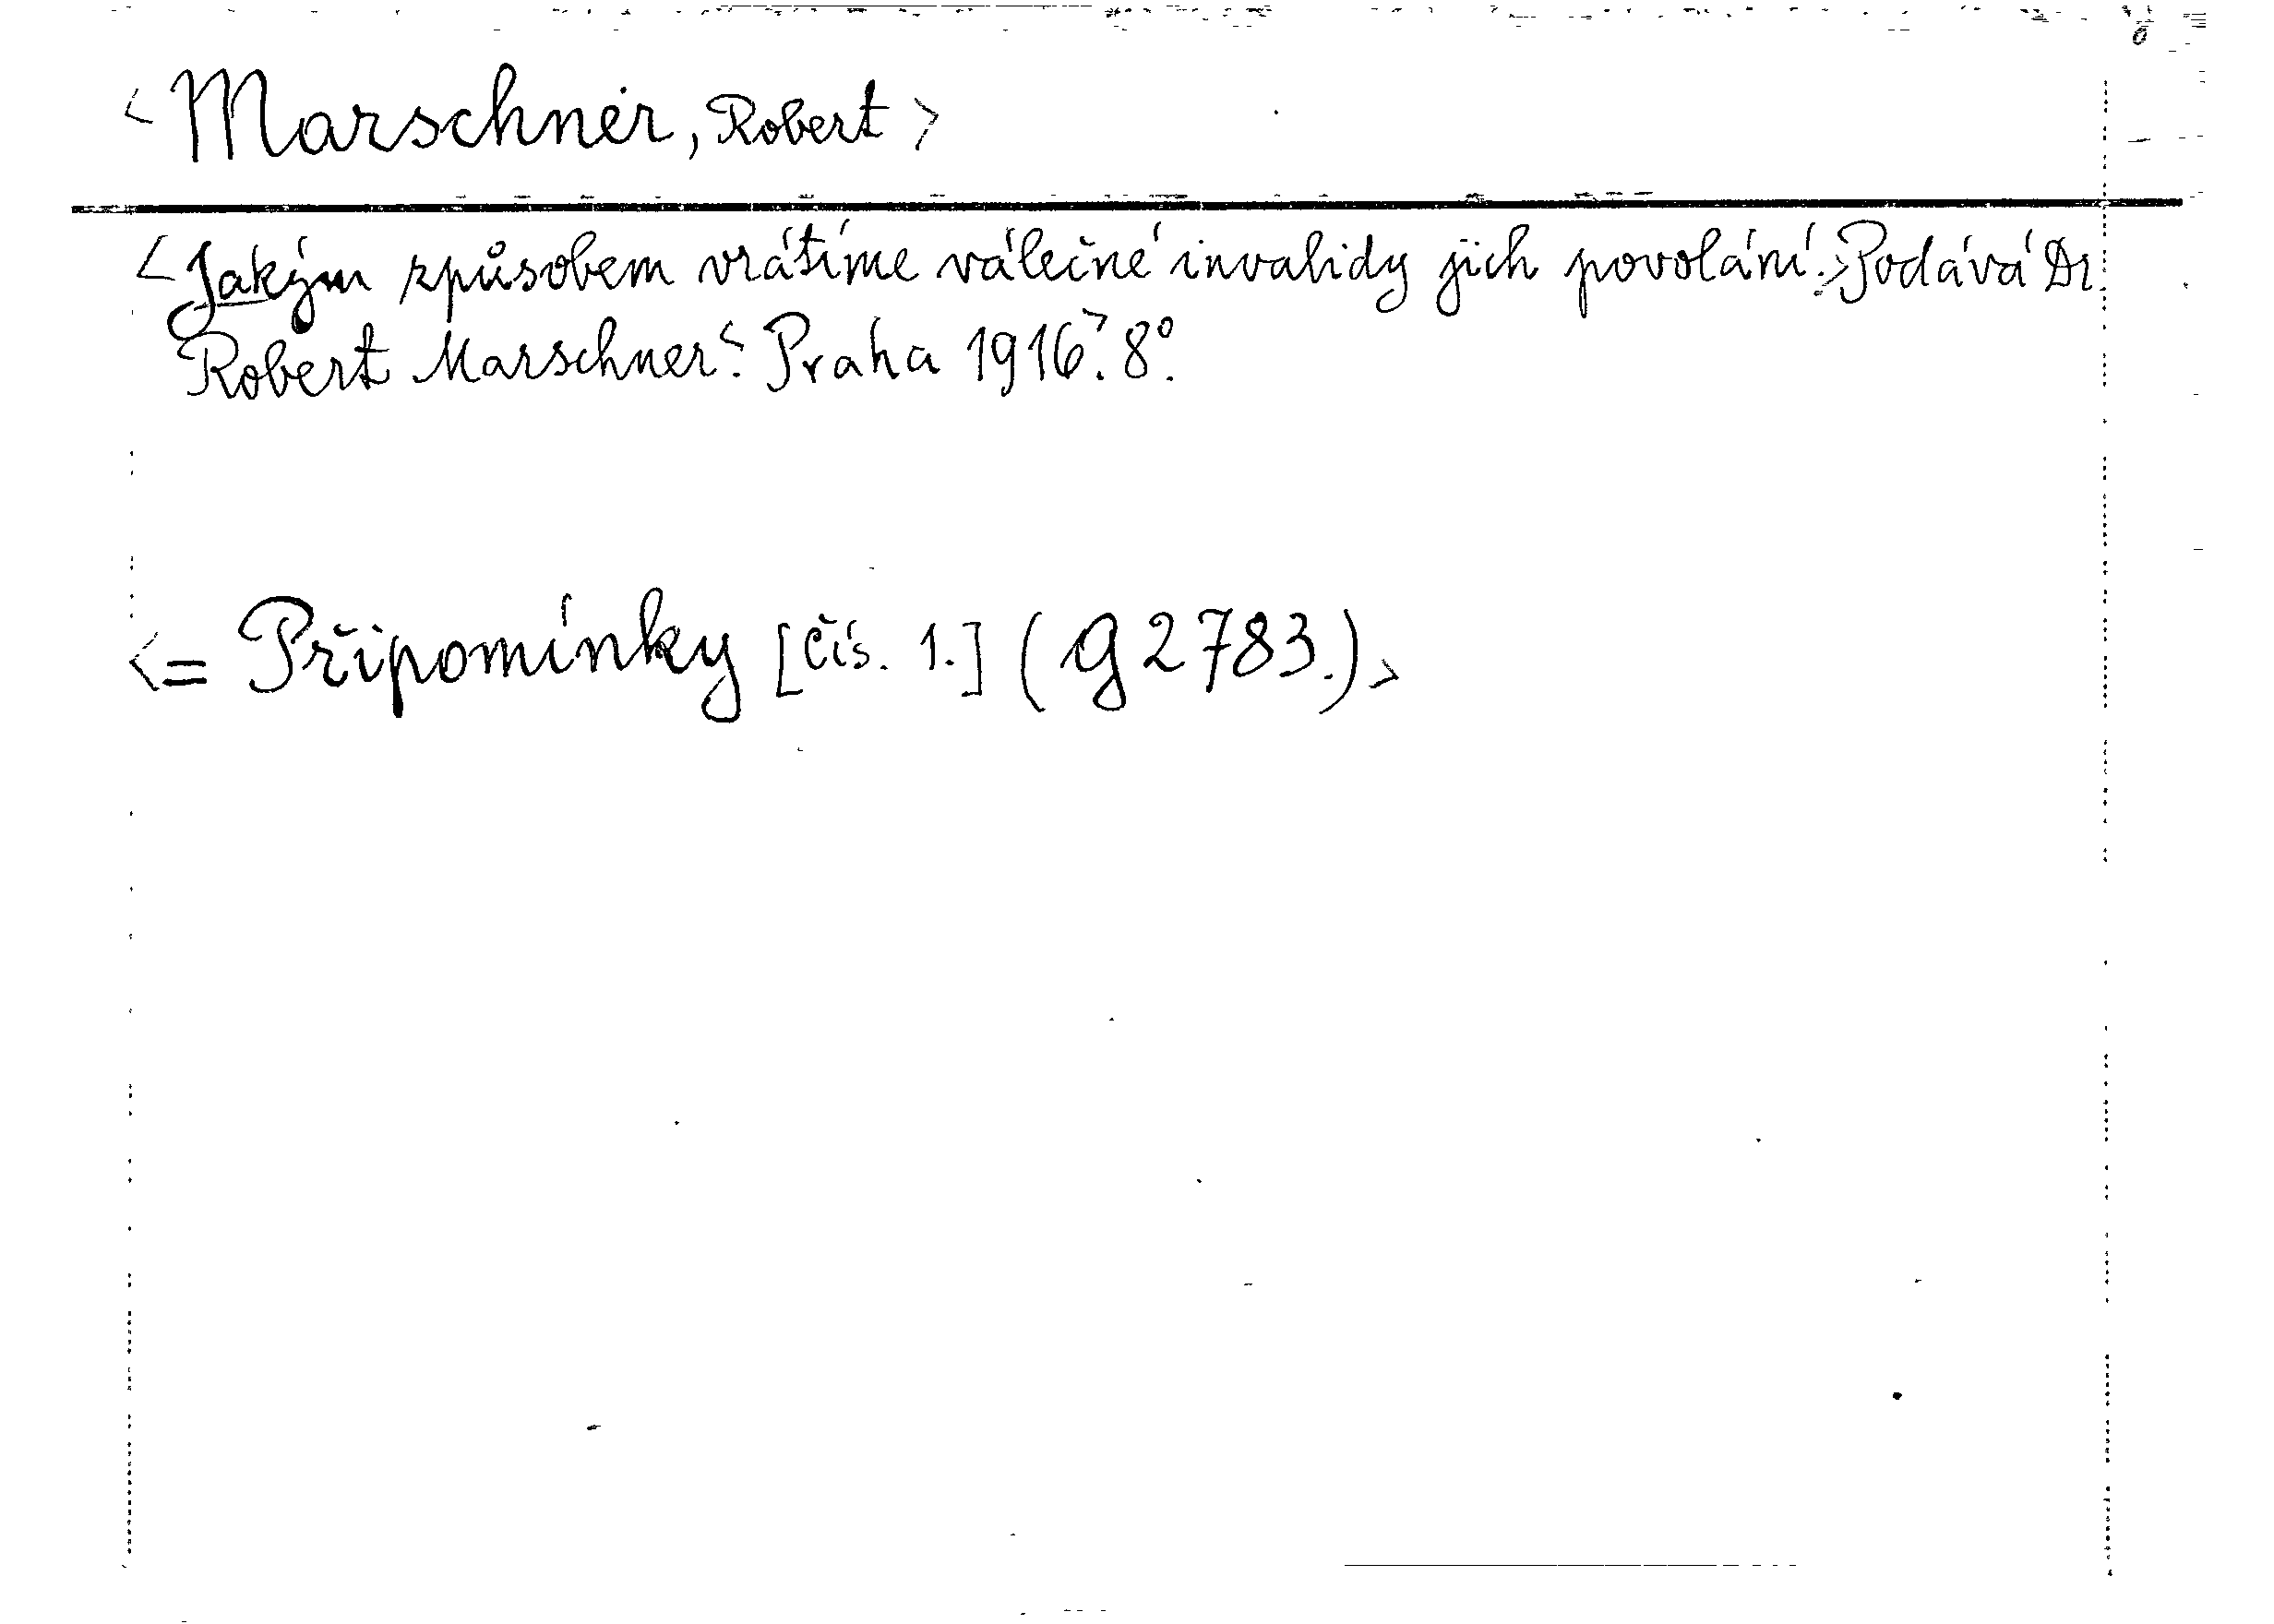 <Marschner, Robert>
<Jakým způsobem vrátíme válečné invalidy jich povolání.> Podává Dr.
Robert Marschner<. Praha 1916>. 8°.
<= Připomínky [čís. 1.] (g 2783.)>